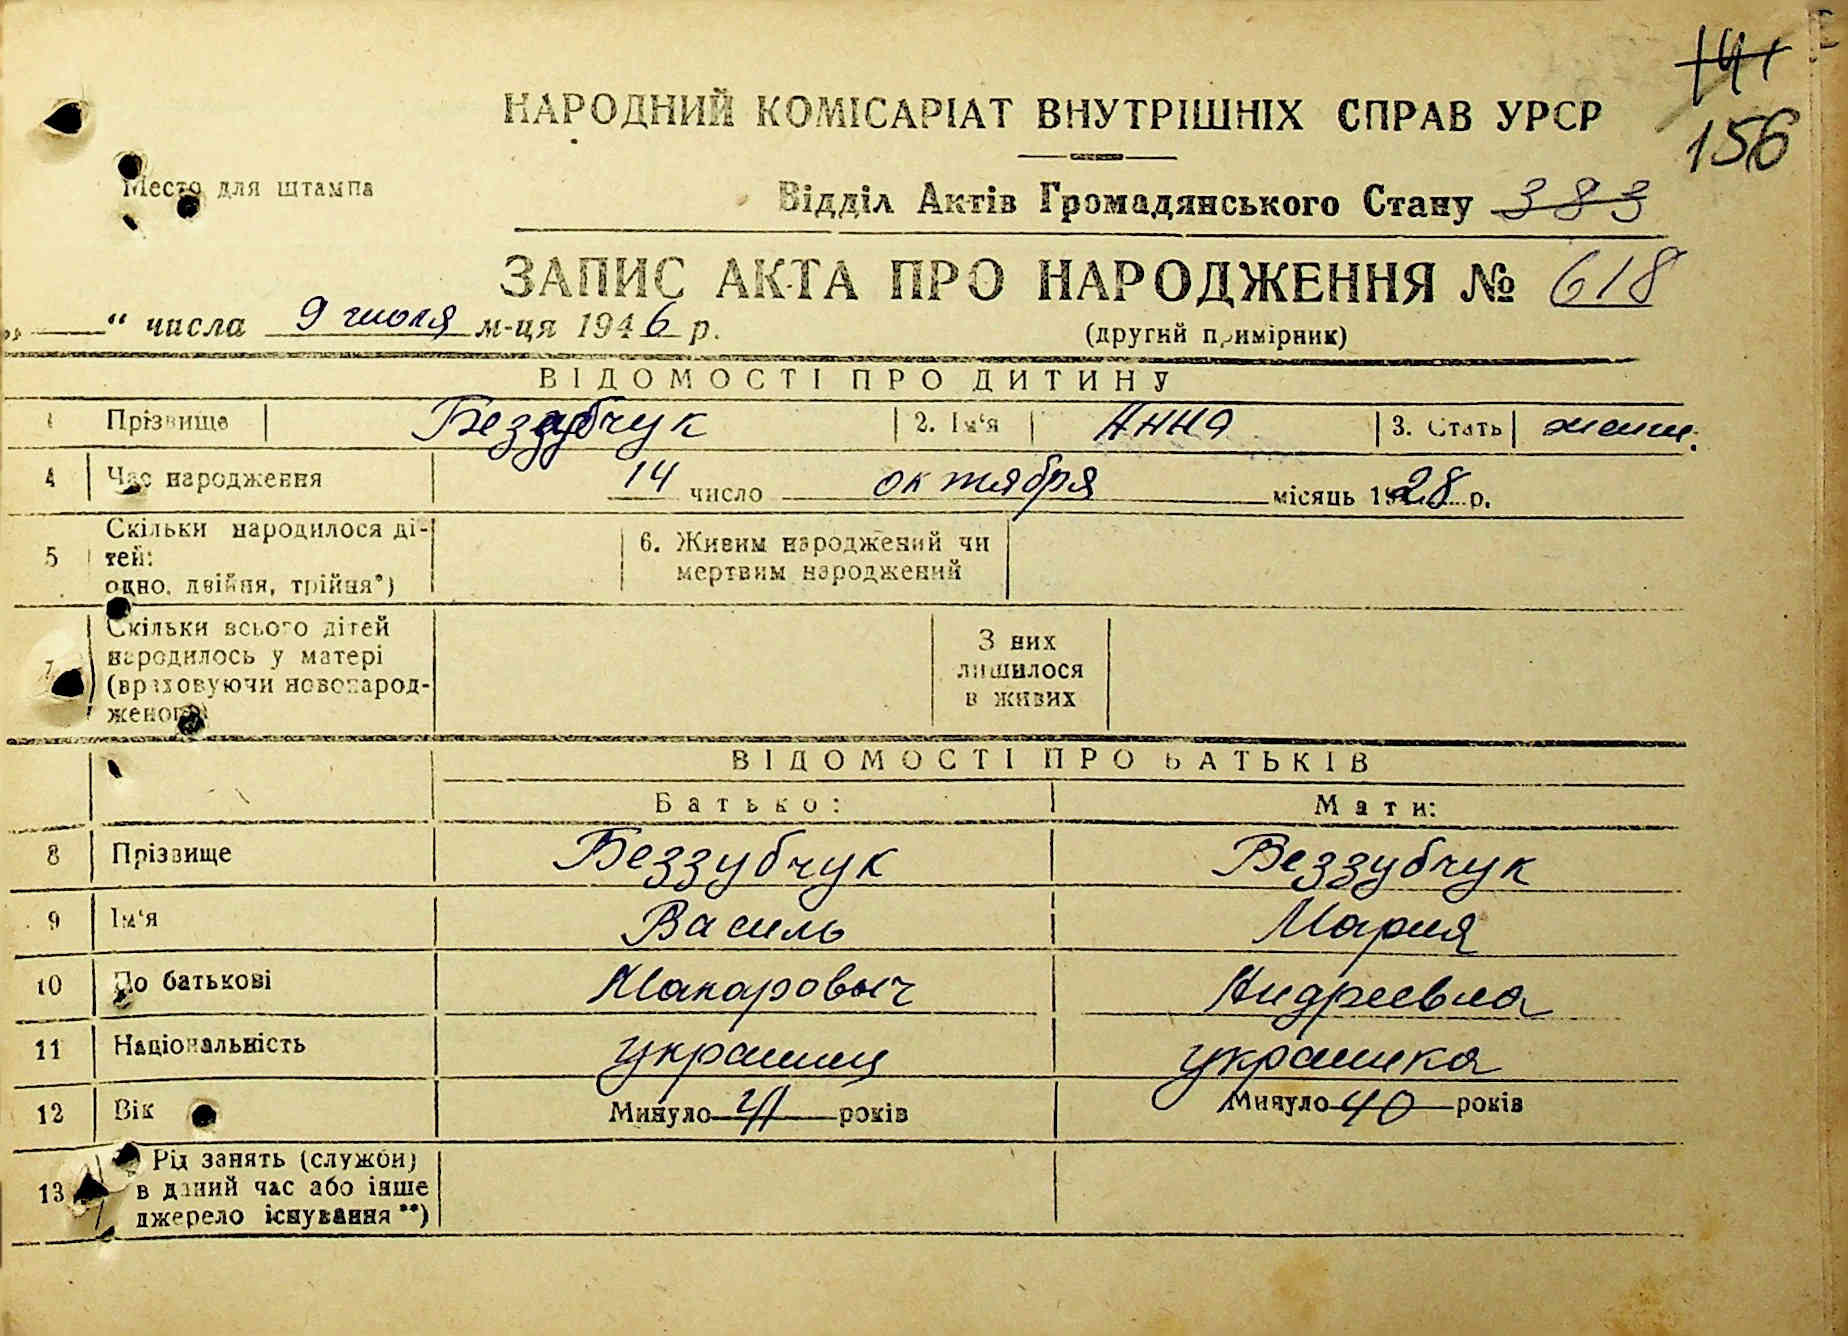 141
156
НАРОДНИЙ КОМІСАРІАТ ВНУТРІШНІХ СПРАВ УРСР
Место для штампа
Відділ Актів Громадянського Стану 383
ЗАПИС АКТА ПРО НАРОДЖЕННЯ № 618
„ — “ числа 9 июля м-ця 1946 р.
(другий примірник)
ВІДОМОСТІ ПРО ДИТИНУ
1 Прізвище Беззубчук 2. Ім‘я Анна 3. Стать женш.
4 Час народження 14 число октября місяць 1928 р.
5 Скільки народилося ді-
тей:
одно, двійня, трійня*)
6. Живим народжений чи
мертвим народжений
7 Скільки всього дітей
народилось у матері
(враховуючи новонарод-
женого)
З них
лишилося
в живих
ВІДОМОСТІ ПРО БАТЬКІВ
Батько: Мати:
8 Прізвище Беззубчук Беззубчук
9 Ім‘я Василь Мария
10 По батькові Макаровыч Андреевна
11 Національність украинц украинка
12 Вік Минуло 41 років Минуло 40 років
13 Рід занять (служби)
в даний час або інше
джерело існування**)